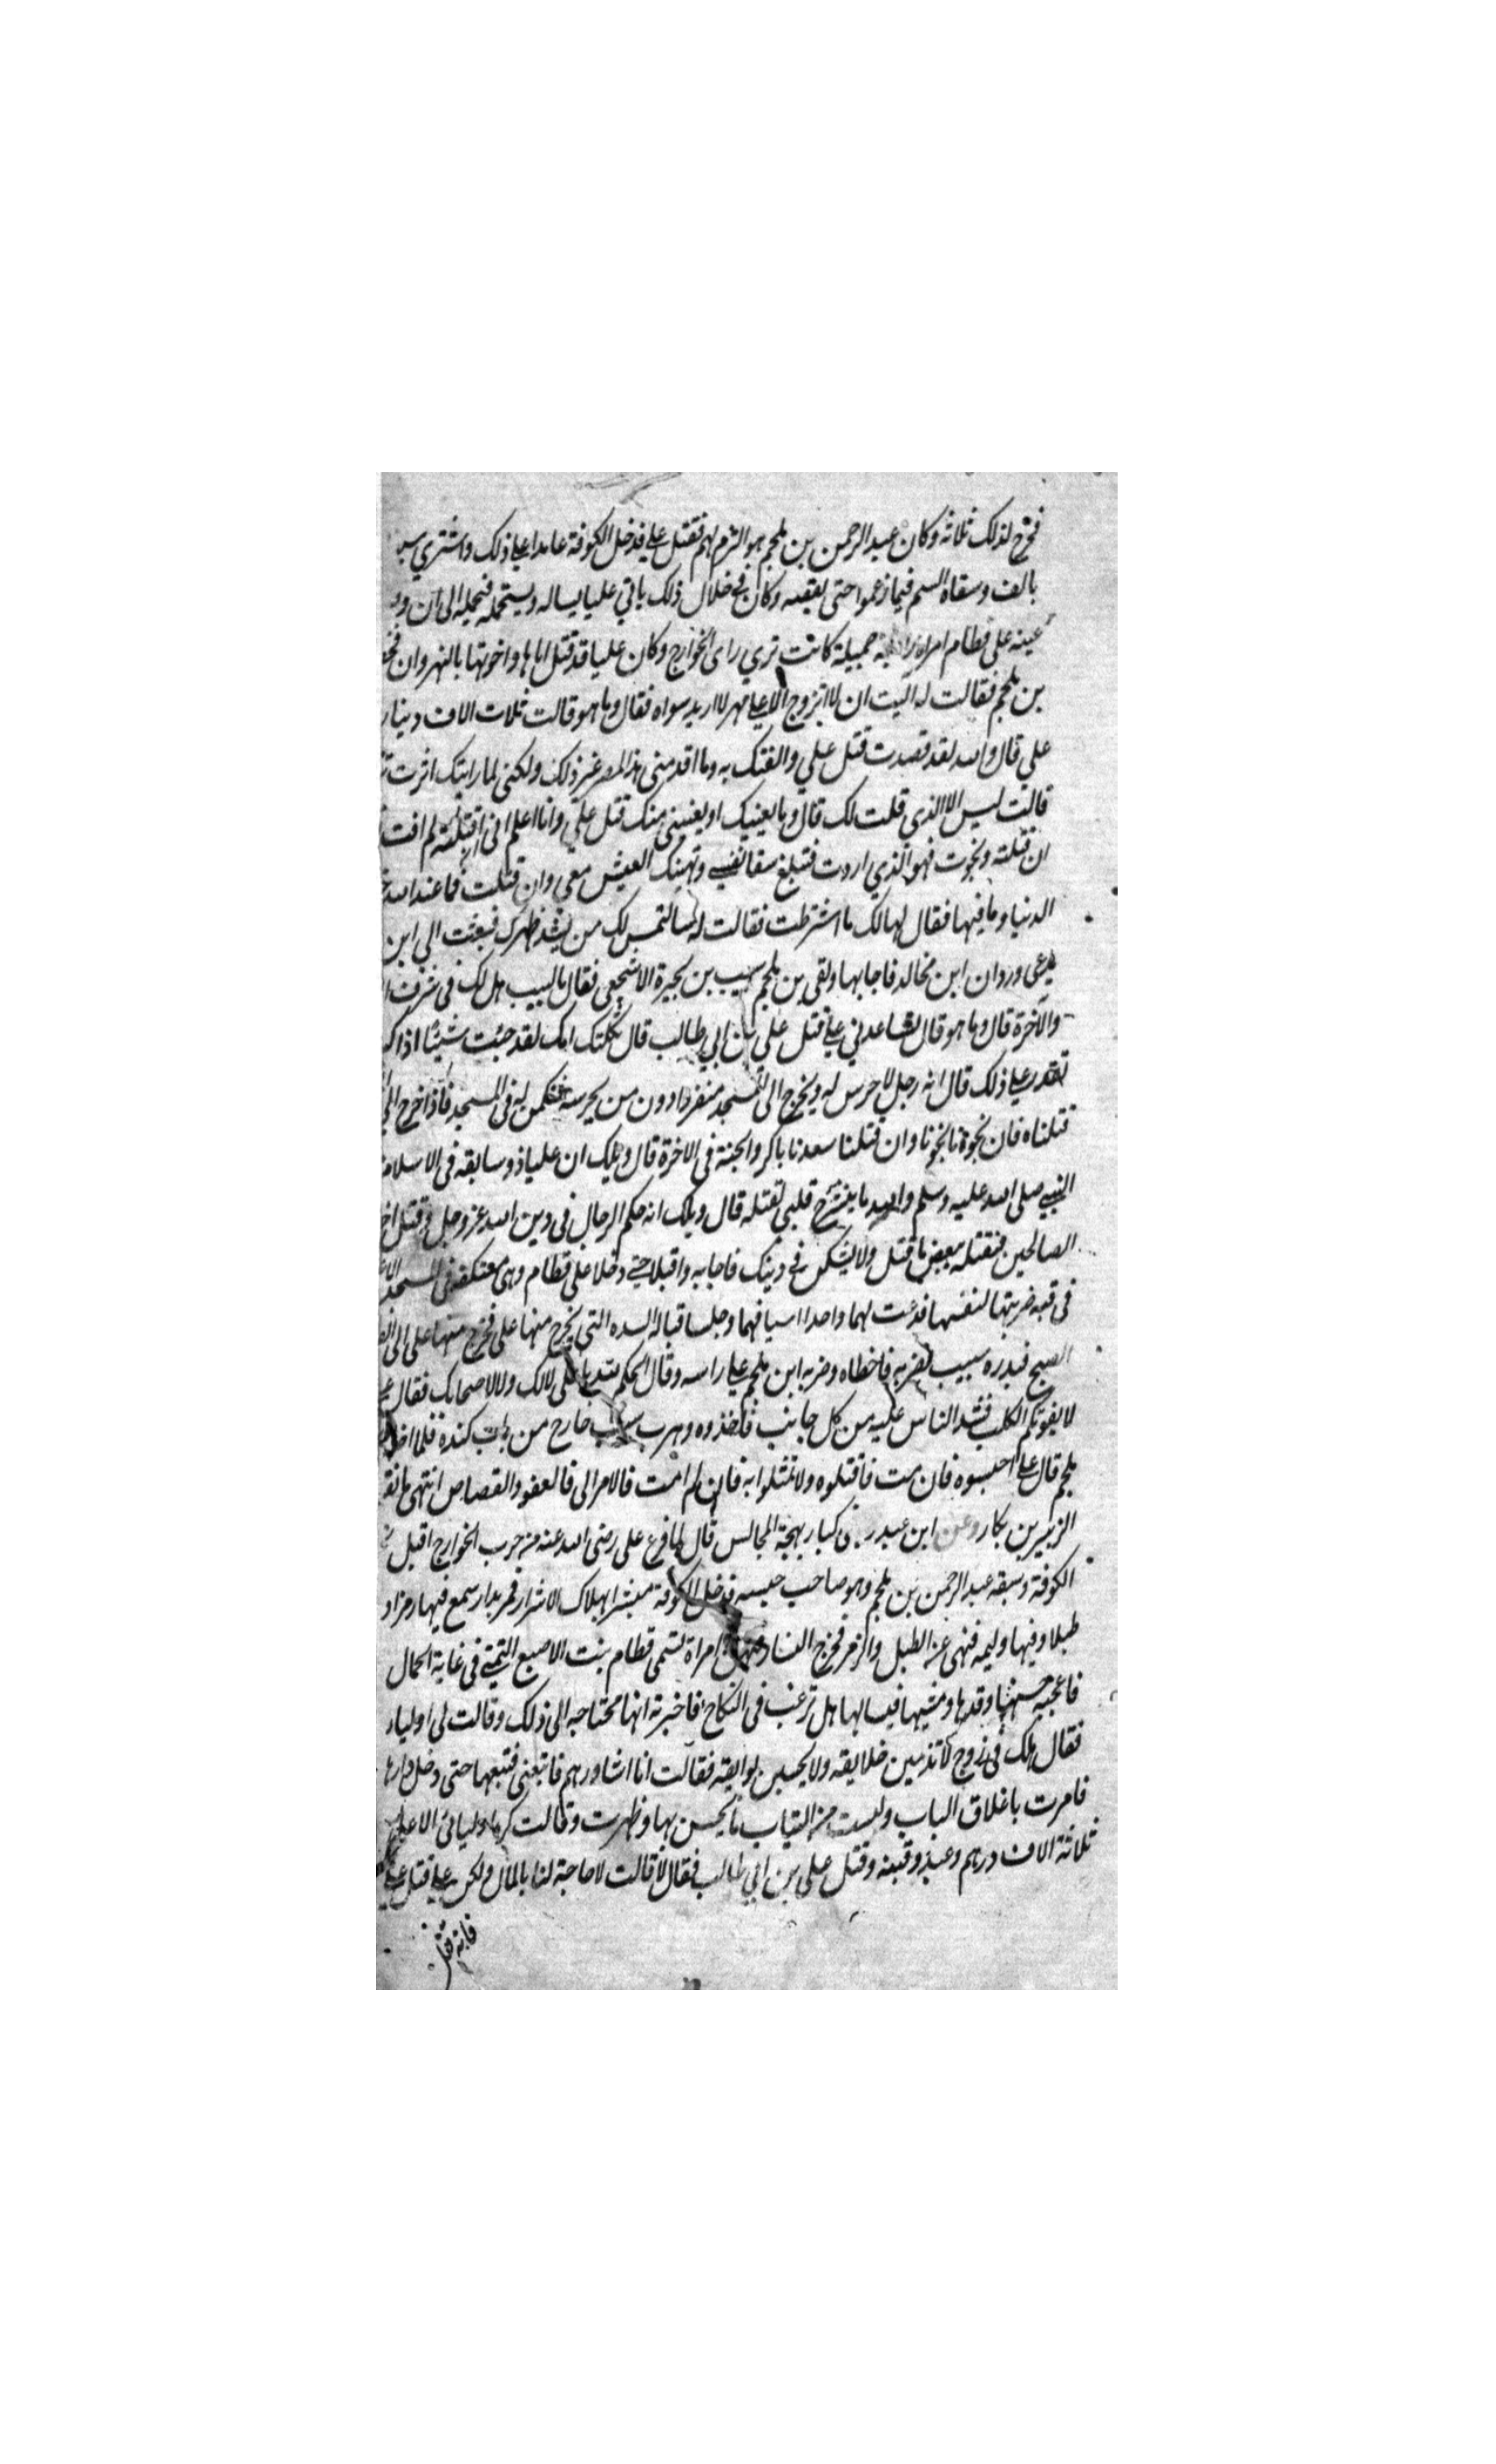 فخرج لذلك ثلاثة وكان عبد الرحمن بن ملجم هو التزم لهم فقتل علي فدخل الكوفة عامدا علي ذلك واشتري
بالف وسقاه السم فيما زعموا حتى لفظه وكان في خلال ذلك ياتي عليا يساله ويستحمله فيحمله الى ان
عينه على قطام امراة جميلة كانت تري راى الخوارج وكان عليا قد قتل اباها واخوتها بالنهروان
بن ملجم فقالت له اليت ان لا اتزوج الا علي مهر لا اريد سواه فقال وما هو قالت ثلاث الاف دينار
علي قال والله لقد قصدت قتل علي والفتك به وما اقدمني هذا المصر غير ذلك ولكني لما رايتك اثرت
قالت ليس الا الذي قلت لك قال وما يعنيك او يغنيني منك قتل علي وانا اعلم اني ان قتلته لم افت
ان قتلته ونجوت فهو الذي اردت فتبلغ شفا نفسي ويهنيك العيش معي وان قتلت فما عند الله
الدنيا وما فيها فقال لها لك ما اشترطت فقالت له سالتمس لك من يشد ظهرك فبعثت الي ابن
يدعى وردان ابن مخالد فاجابها ولقى بن ملجم سبيب بن بجيرة الاشجعي فقال يا سبيب هل لك في شرف
والآخرة قال وما هو قال تساعدني علي قتل علي بن ابي طالب قال ثكلتك امك لقد جئت شيئا ادا
تقدر علي ذلك قال انه رجل لا حرس له ويخرج الى المسجد منفردا دون من يحرسه فنكمن له في المسجد فاذا خرج الي
قتلناه فان نجونا نجونا وان قتلنا سعدنا بالذكر والجنة في الاخرة قال ويلك ان عليا ذو سابقه في الاسلام
النبي صلى الله عليه وسلم والله ما ينشرح قلبي لقتله قال ويلك انه حكم الرجال في دين الله عز وجل وقتل
الصالحين فنقتله ببعض ما قتل ولا تشكن في دينك فاجابه واقبلا حتي دخلا على قطام وهي معتكفة في المسجد
في قبه ضربتها لنفسها فدعت لهما واخذا اسيافهما وجلسا قبالة السده التي يخرج منها علي فخرج منها علي الى
الصبح فبدره سبيب فضربه فاخطاه وضربه ابن ملجم علي راسه وقال الحكم لله يا علي لا لك ولا لاصحابك فقال
لا يفوتكم الكلب فشد الناس عليه من كل جانب فاخذوه وهرب سبيب خارج من باب كندة فلما
ملجم قال علي احبسوه فان مت فاقتلوه ولا تمثلوا به فان لم امت فالامر الى فالعفو والقصاص انتهى ما
الزبير بن بكار وعن ابن عبد ربه كتاب بهجة المجالس قال لما فرغ على رضى الله عنه من حرب الخوارج اقبل
الكوفة وسبقه عبد الرحمن بن ملجم وهو صاحب حبسه فدخل الكوفة مبشرا بهلاك الاشرار فمر بدار سمع فيها
طبلا وفيها وليمه فنهى عن الطبل والزمر فخرج النساء منها امراة تسمى قطام بنت الاصبع التميمي في غاية الجمال
فاعجبه حسنها وقدها ومشيها فسالها هل ترغب في النكاح فاخبرته انها محتاجه الى ذلك وقالت لي اولياء
فقال هل لك في زوج لا تذمين خلايقه ولا يخشين بوايقه فقالت انا اشاورهم فاتبعني فتبعها حتى دخل دارها
فامرت باغلاق الباب ولبست من الثياب ما يحسن بها وظهرت وقالت اوليائي الا علي
ثلاثة الاف درهم وعبد وقينه وقتل علي بن ابي طالب فقال لا قالت لا حاجة لنا بالمال ولكن علي قتل علي